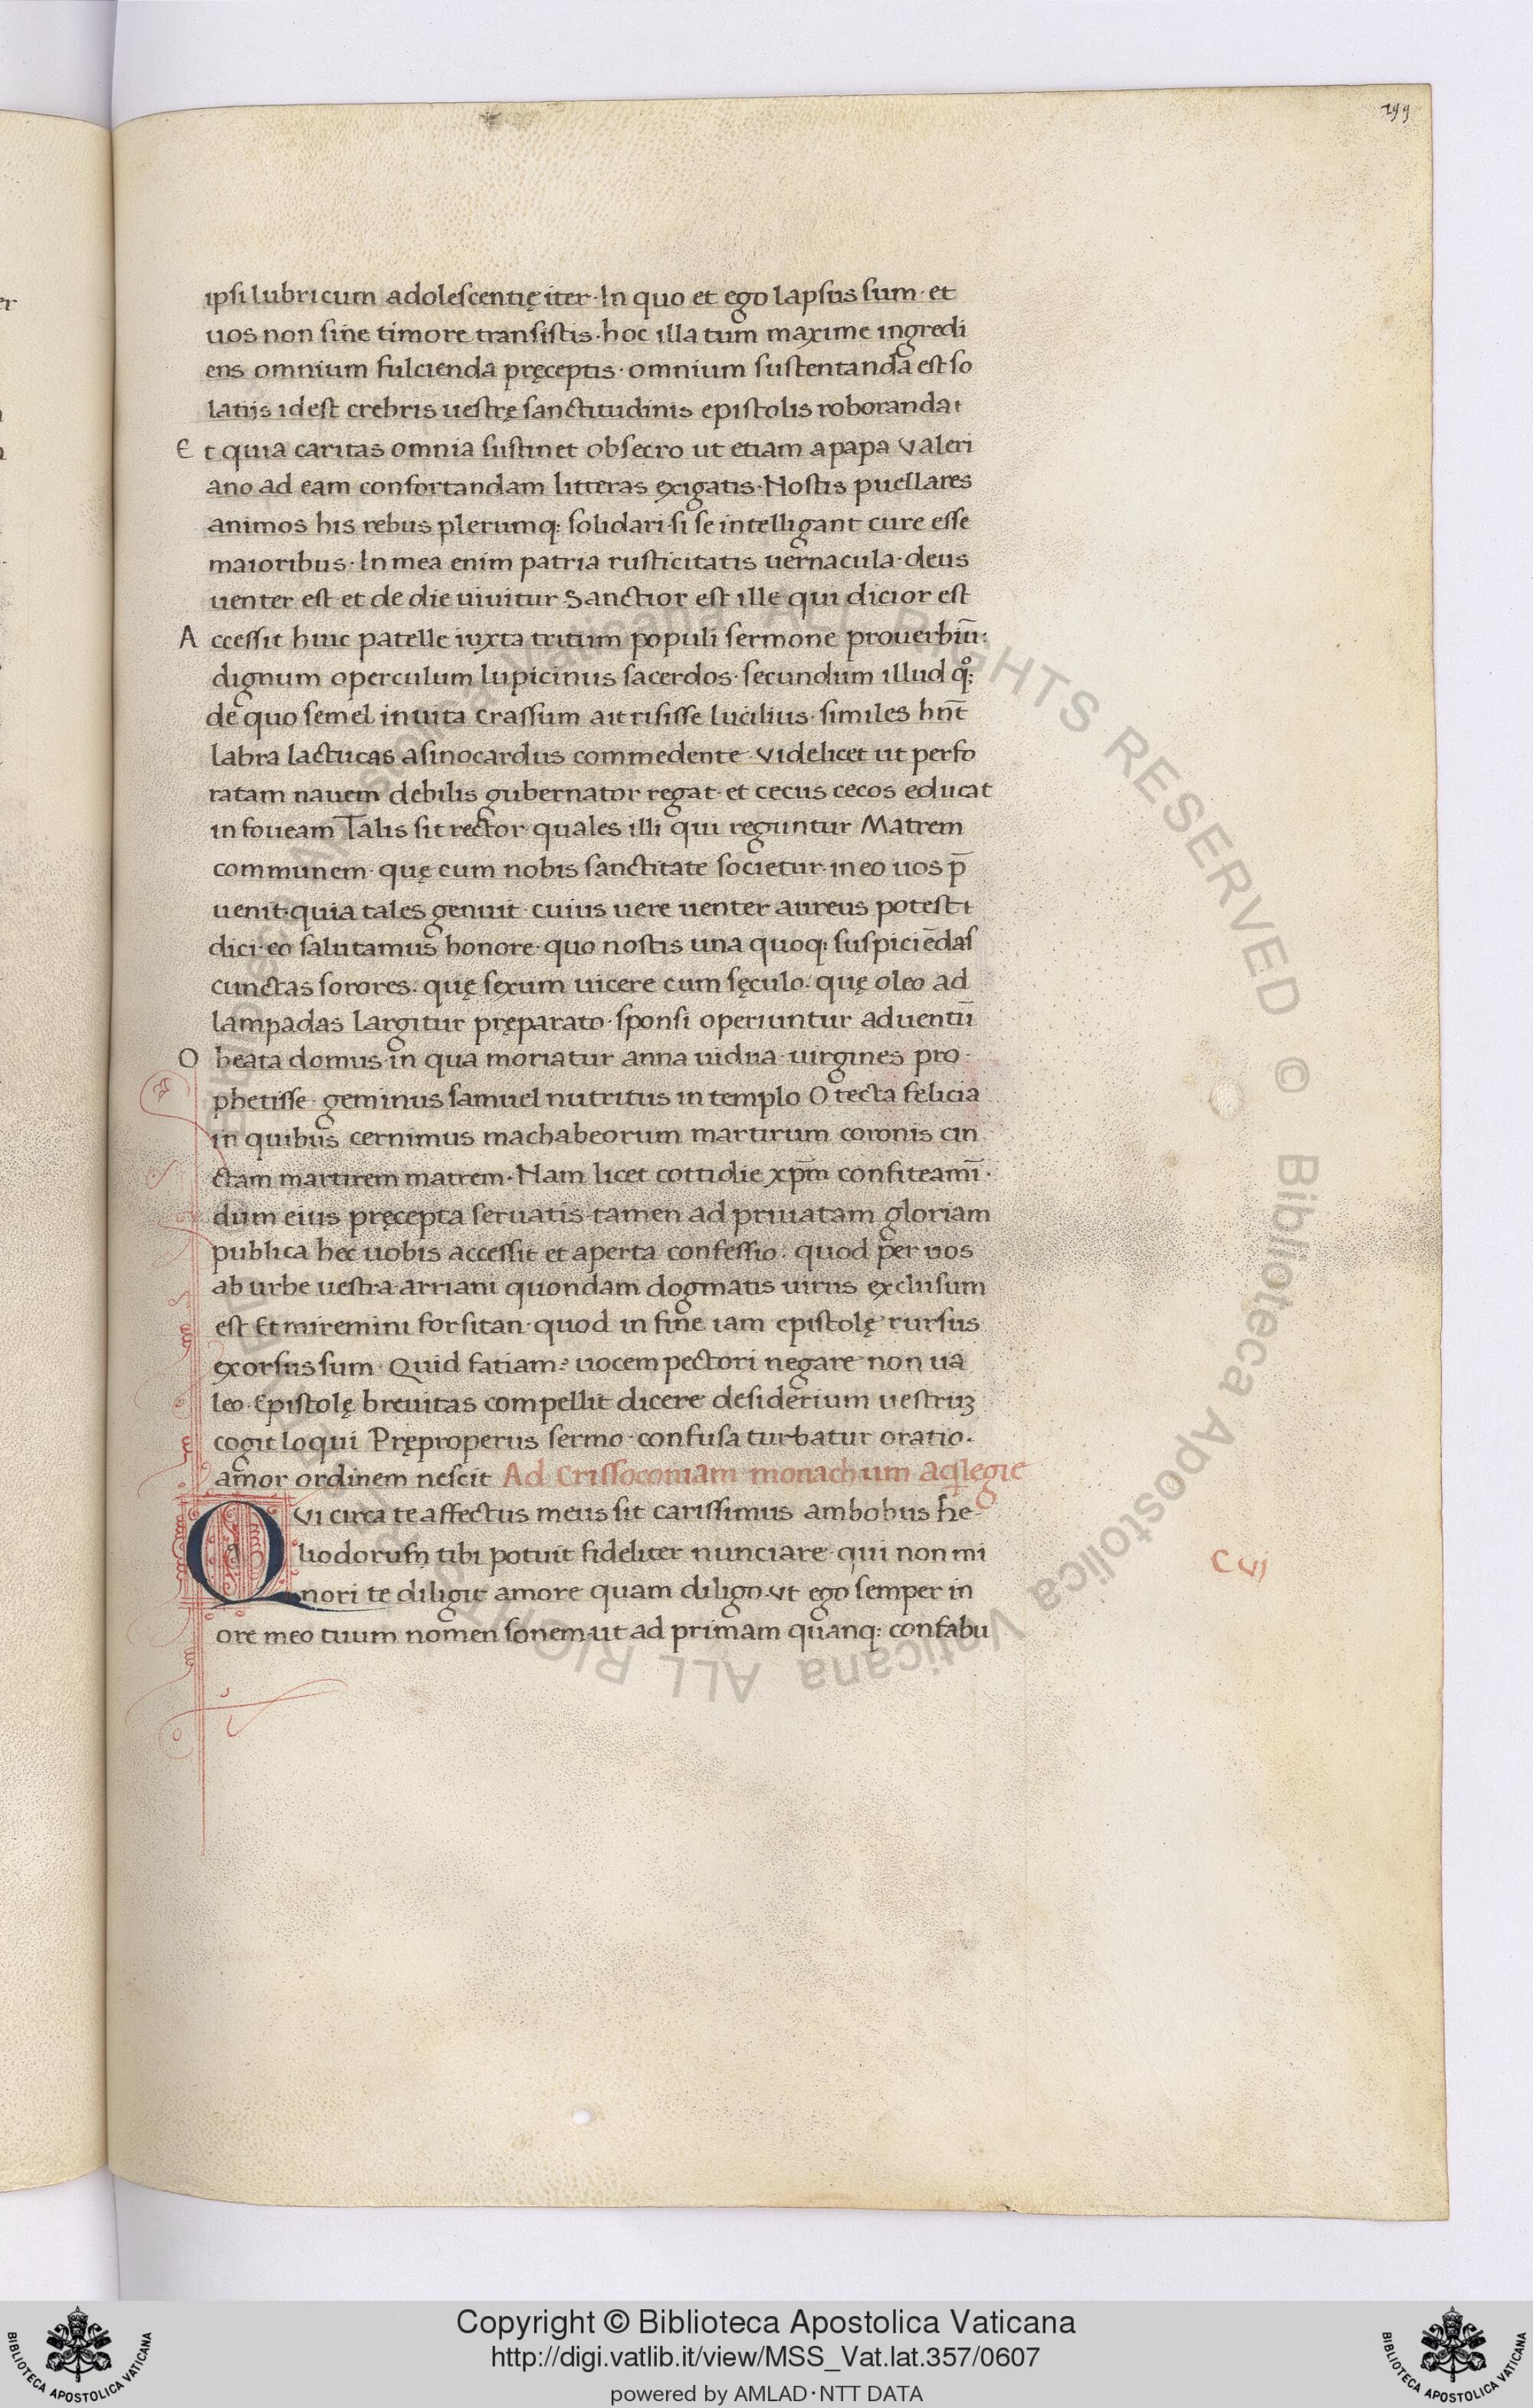 299
ipsi lubricum adolescentię iter · In quo et ego lapsus sum · et
uos non sine timore transistis · hoc illa tum maxime ingredi
ens omnium fulcienda pręceptis · omnium sustentanda est so
latijs idest crebris uestrę sanctitudinis epistolis roboranda ·
Et quia caritas omnia sustinet obsecro ut etiam a papa Valeri
ano ad eam confortandam litteras exigatis · Nostis puellares
animos his rebus plerumq; solidari · si se intelligant cure esse
maioribus · In mea enim patria rusticitatis uernacula · deus
uenter est et de die uiuitur Sanctior est ille qui dicior est
Accessit huic patelle iuxta tritum populi sermone prouerbiū:
dignum operculum lupicinus sacerdos · secundum illud qͦ;
de quo semel in uita crassum ait risisse lucilius · similes hn̄t
labra lactucas asinocardus commedente · Videlicet ut perfo
ratam nauem debilis gubernator regat · et cecus cecos educat
in foueam Talis sit rector quales illi qui reguntur Matrem
communem · quę cum nobis sanctitate societur · in eo uos p̄
uenit · quia tales genuit · cuius uere uenter aureus potest ·
dici · eo salutamus honore · quo nostis una quoq; suspiciēdas
cunctas sorores · quę sexum uicere cum sęculo · quę oleo ad
lampadas largitur pręparato · sponsi operiuntur aduentū
O beata domus in qua moriatur anna uidua · uirgines pro-
phetisse · geminus samuel nutritus in templo O tecta felicia
in quibus cernimus machabeorum martirum coronis cin
ctam martirem matrem · Nam licet cottidie xp̄m confiteamī ·
dum eius pręcepta seruatis tamen ad priuatam gloriam
publica hec uobis accessit et aperta confessio · quod per uos
ab urbe uestra arriani quondam dogmatis uirus exclusum
est Et miremini forsitan · quod in fine iam epistolę rursus
exorsus sum · Quid fatiam? uocem pectori negare non ua
leo · Epistolę breuitas compellit dicere desiderium uestruꝫ
cogit loqui Pręproperus sermo · confusa turbatur oratio ·
amor ordinem nescit Ad Crissocomam monachum aq̄legie
QVi circa te affectus meus sit carissimus ambobus he-
liodorusm tibi potuit fideliter nunciare · qui non mi
nori te diligit amore quam diligo · Vt ego semper in
ore meo tuum nomen sonem · ut ad primam quanq; confabu
Cvj
Copyright © Biblioteca Apostolica Vaticana
http://digi.vatlib.it/view/MSS_Vat.lat.357/0607
powered by AMLAD·NTT DATA